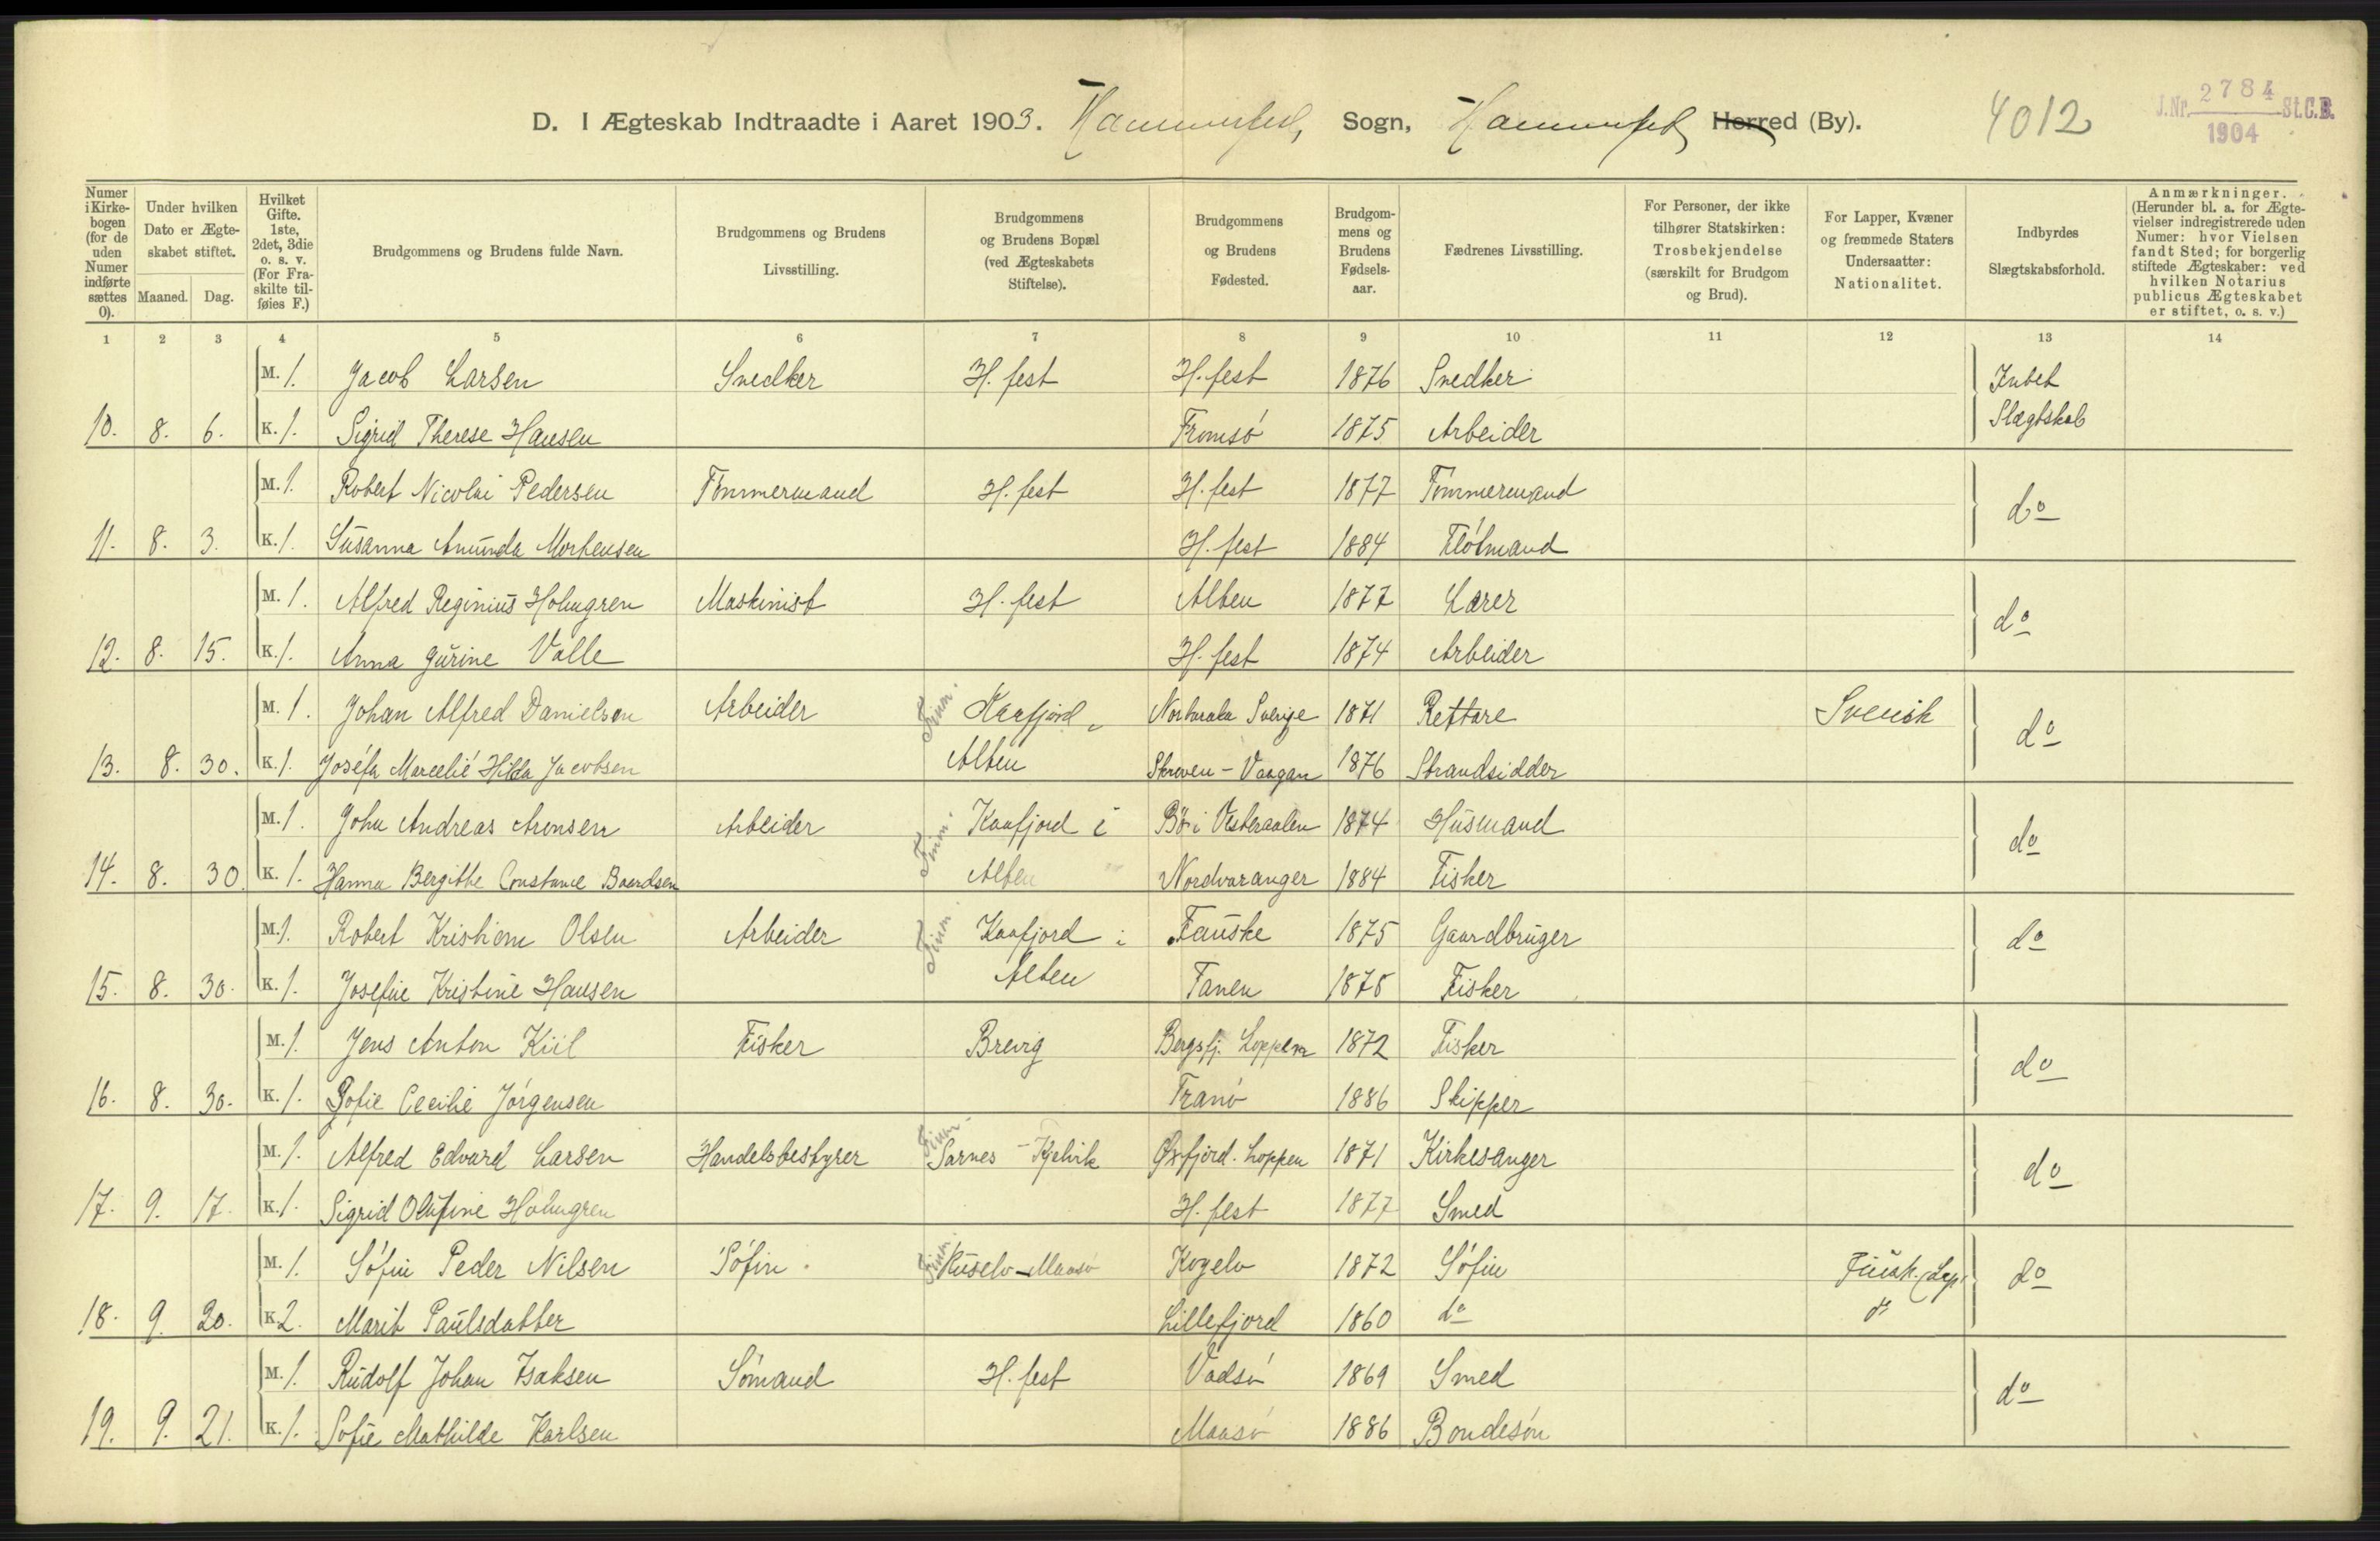 D. I Ægteskab Indtraadte i Aaret 1903. Hammerfest Sogn, Hammerfest Herred (By). 4012
J.Nr. 2784 St.C.B.
1904
Numer i Kirkebogen (for de uden Numer indførte sættes 0).
Under hvilken Dato er Ægteskabet stiftet.
Maaned. Dag.
Hvilket Gifte. 1ste, 2det, 3die o. s. v. (For Fraskilte tilføies F.)
Brudgommens og Brudens fulde Navn.
Brudgommens og Brudens Livsstilling.
Brudgommens og Brudens Bopæl (ved Ægteskabets Stiftelse).
Brudgommens og Brudens Fødested.
Brudgommens og Brudens Fødselsaar.
Fædrenes Livsstilling.
For Personer, der ikke tilhører Statskirken: Trosbekjendelse (særskilt for Brudgom og Brud).
For Lapper, Kvæner og fremmede Staters Undersaatter: Nationalitet.
Indbyrdes Slægtskabsforhold.
Anmærkninger. (Herunder bl. a. for Ægtevielser indregistrerede uden Numer: hvor Vielsen fandt Sted; for borgerlig stiftede Ægteskaber: ved hvilken Notarius publicus Ægteskabet er stiftet, o. s. v.)
1 2 3 4 5 6 7 8 9 10 11 12 13 14
M. 1. Jacob Larsen Snedker H.fest H.fest 1876 Snedker Intet
10. 8. 6. K. 1. Sigrid Therese Hansen Tromsö 1875 Arbeider Slægtskab
M. 1. Robert Nicolai Pedersen Tömmermand H.fest H.fest 1877 Tömmermand do
11. 8. 3. K. 1. Susanna Amunda Mortensen H.fest 1884 Flötmand
M. 1. Alfred Reginius Holmgren Maskinist H.fest Alten 1877 Lærer do
12. 8. 15. K. 1. Anna Gurine Valle H.fest 1874 Arbeider
M. 1. Johan Alfred Danielson Arbeider Finm. Kaafjord Sverige 1871 Rettare Svensk do
13. 8. 30. K. 1. Josefa Marcelie Hilda Jacobsen Alten Skroven - Vaagan 1876 Strandsidder
M. 1. John Andreas Aronsen Arbeider Finm. Kaafjord i Bö i Vesteraalen 1874 Husmand do
14. 8. 30. K. 1. Hanna Bergitte Constance Baardsen Alten Nordvaranger 1884 Fisker
M. 1. Robert Kristian Olsen Arbeider Finm. Kaafjord i Fauske 1875 Gaardbruger do
15. 8. 30. K. 1. Josefine Kristine Hansen Alten Tanen 1878 Fisker
M. 1. Jens Anton Kiil Fisker Brevig Bergsfj. Loppen 1872 Fisker do
16. 8. 30. K. 1. Sofie Cecilie Jörgensen Tranö 1886 Skipper
M. 1. Alfred Edvard Larsen Handelsbestyrer Finm. Sarnes - Kjelvik Øxfjord. Loppen 1871 Kirkesanger do
17. 9. 17. K. 1. Sigrid Olufine Holmgren H.fest 1877 Smed
M. 1. Söfin Peder Nilsen Söfin Finm. Ruselv - Maasö Kogelv 1872 Söfin Finsk. (Lap) do
18. 9. 20. K. 2. Marit Paulsdatter Lillefjord 1860 do do
M. 1. Rudolf Johan Isaksen Sömand H.fest Vadsö 1869 Smed do
19. 9. 21. K. 1. Sofie Mathilde Karlsen Maasö 1886 Bondesön